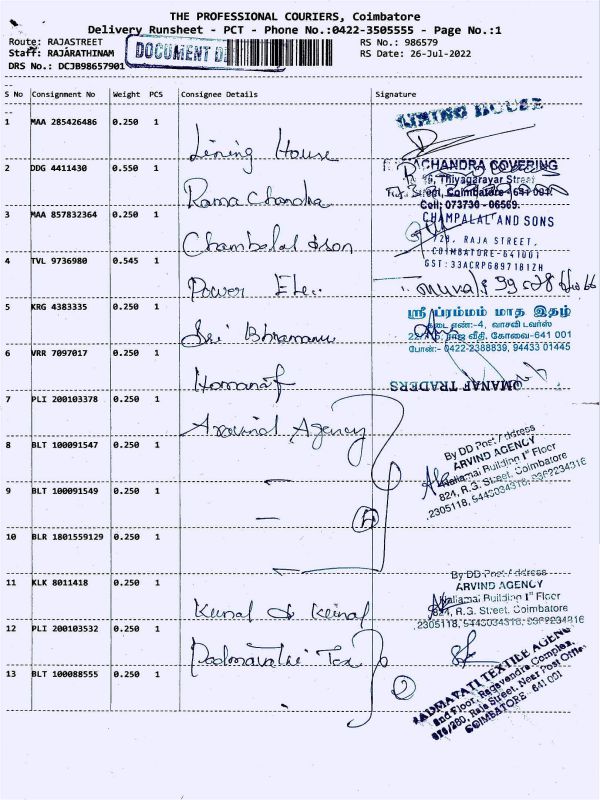 THE PROFESSIONAL COURIERS, Coimbatore
Delivery Runsheet - PCT - Phone No.:0422-3505555 - Page No.:1
Route: RAJASTREET RS No.: 986579
Staff: RAJARATHINAM DOCUMENT RS Date: 26-Jul-2022
DRS No.: DCJB98657901
S No Consignment No Weight PCS Consignee Details Signature
1 MAA 285426486 0.250 1 Lining House
LINING HOUSE
2 DDG 4411430 0.550 1 Rama Chandra
ACHANDRA COVERING
Thiyagarayar Street
Street, Coimbatore-641 001
Cell: 073730 - 06569.
3 MAA 857832364 0.250 1 Chambalal & son
CHAMPALAL AND SONS
RAJA STREET,
COIMBATORE-641001
GST:33ACRPG8971B1ZH
4 TVL 9736980 0.545 1 Power Elec.
5 KRG 4383335 0.250 1 Sri Bhramanu
ஸ்ரீ ப்ரம்மம் மாத இதழ்
கடை எண்:-4, வாசவி டவர்ஸ்
ராஜ வீதி, கோவை-641 001
போன்:- 0422-2388839, 94433 01445
6 VRR 7097017 0.250 1 Homanaf
OMANAF TRADERS
7 PLI 200103378 0.250 1 Aravind Agency
8 BLT 100091547 0.250 1
By DD Post / Address
ARVIND AGENCY
Nallamai Building I" Floor
824, R.G. Street, Coimbatore
9 BLT 100091549 0.250 1
10 BLR 1801559129 0.250 1
4
11 KLK 8011418 0.250 1 Keinal & Keinal
By DD Post / Address
ARVIND AGENCY
Nallamai Building I" Floor
824, R.G. Street, Coimbatore
12 PLI 200103532 0.250 1 Padmavathi Tex
13 BLT 100088555 0.250 1
2
PADMAVATI TEXTILE AGENC
2nd Floor, Ragavendra Complex,
Raja Street, Near Post Office
COIMBATORE - 641 001